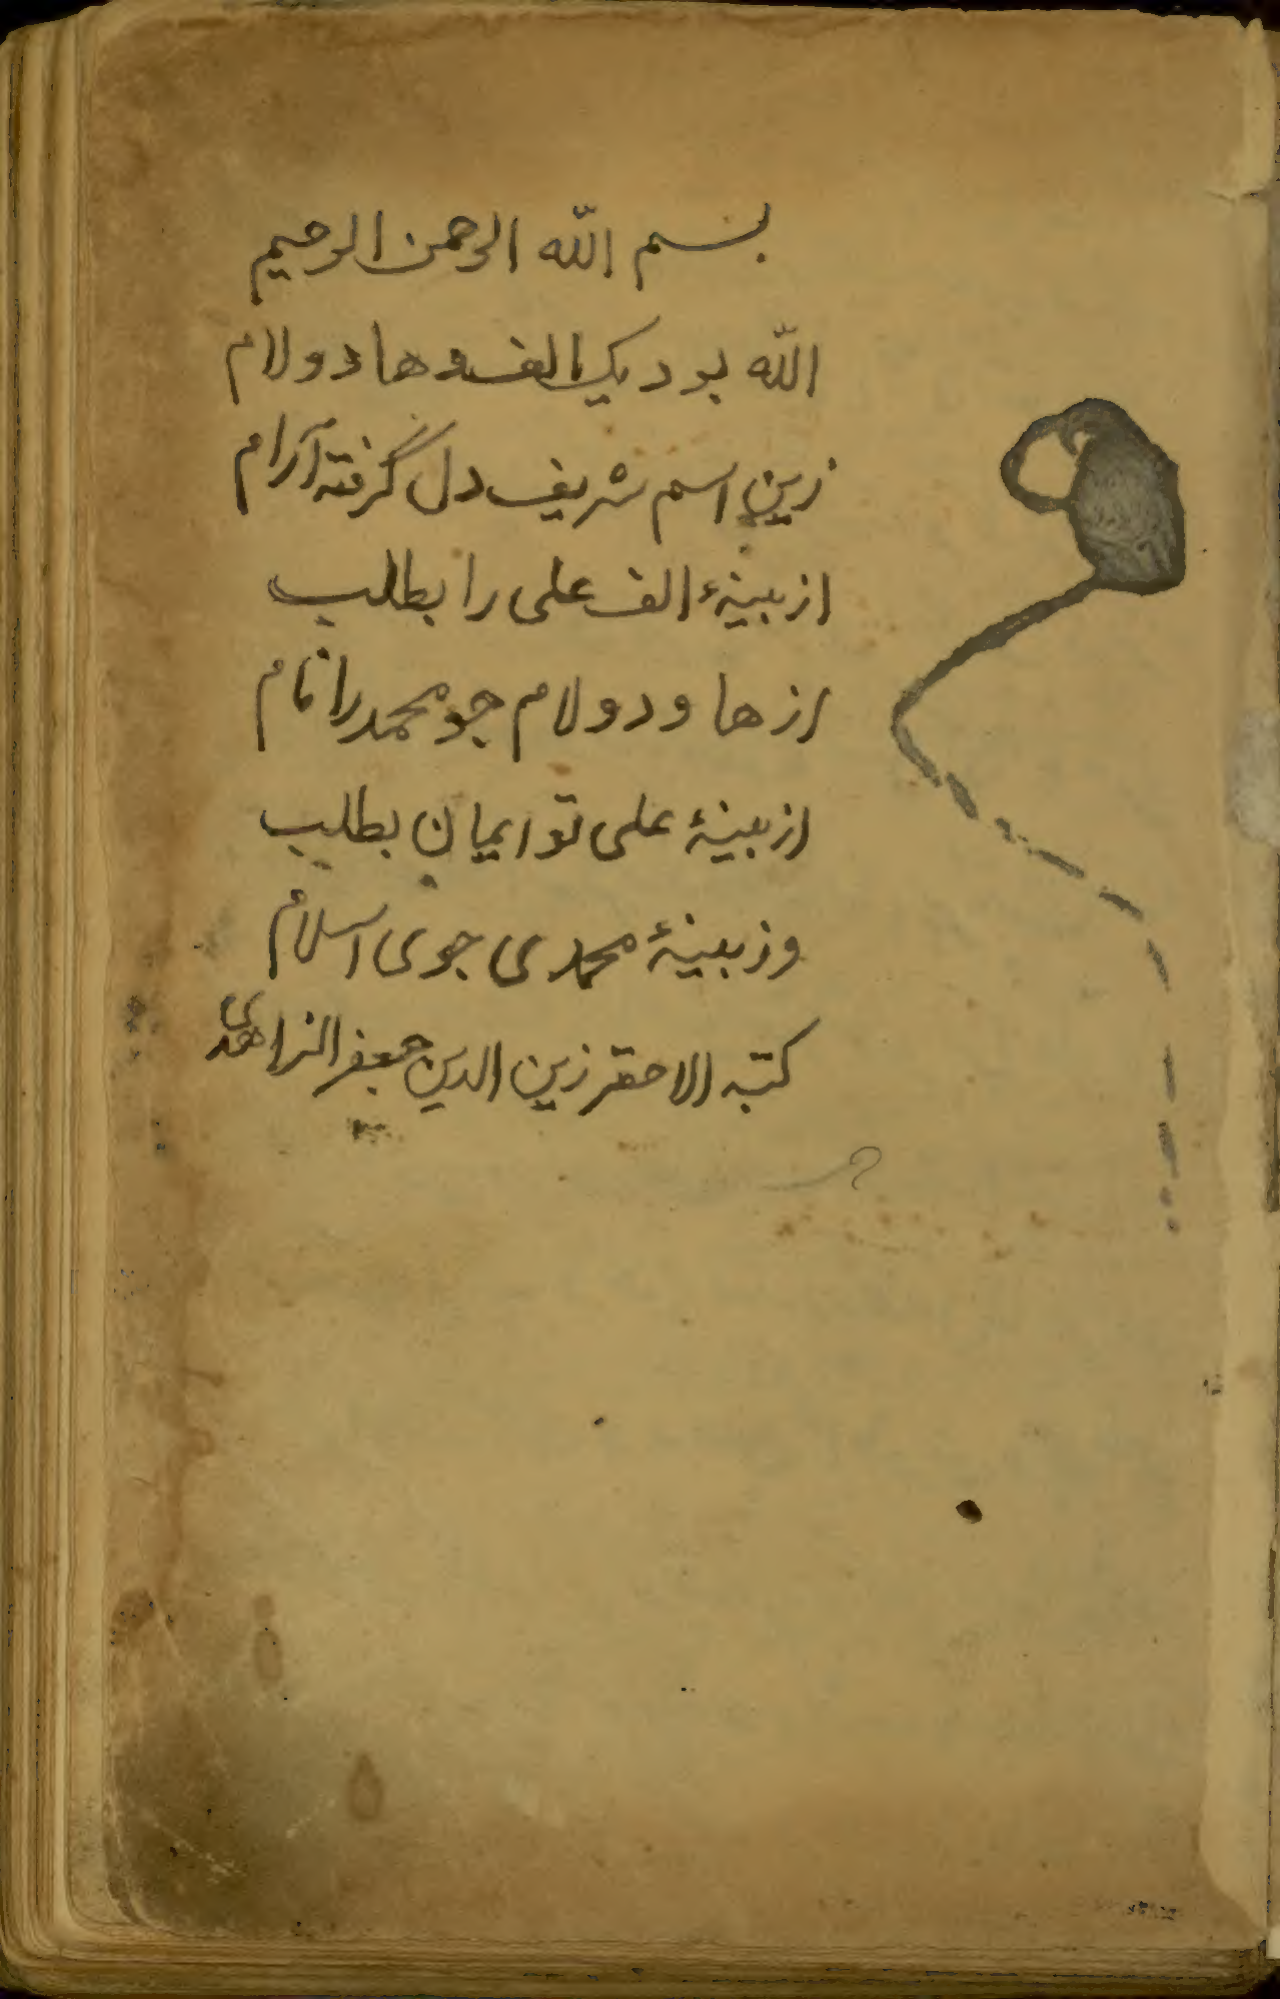 بسم الله الرحمن الرحیم
الله بود یک الف و ها و دو لام
زین اسم شریف دل گرفته آرام
از بینهٔ الف علی را بطلب
از ها و دو لام جو محمد را نام
از بینهٔ علی تو ایمان بطلب
وز بینهٔ محمدی جوی اسلام
کتبه الاحقر زین الدین جعفر الزاهدی